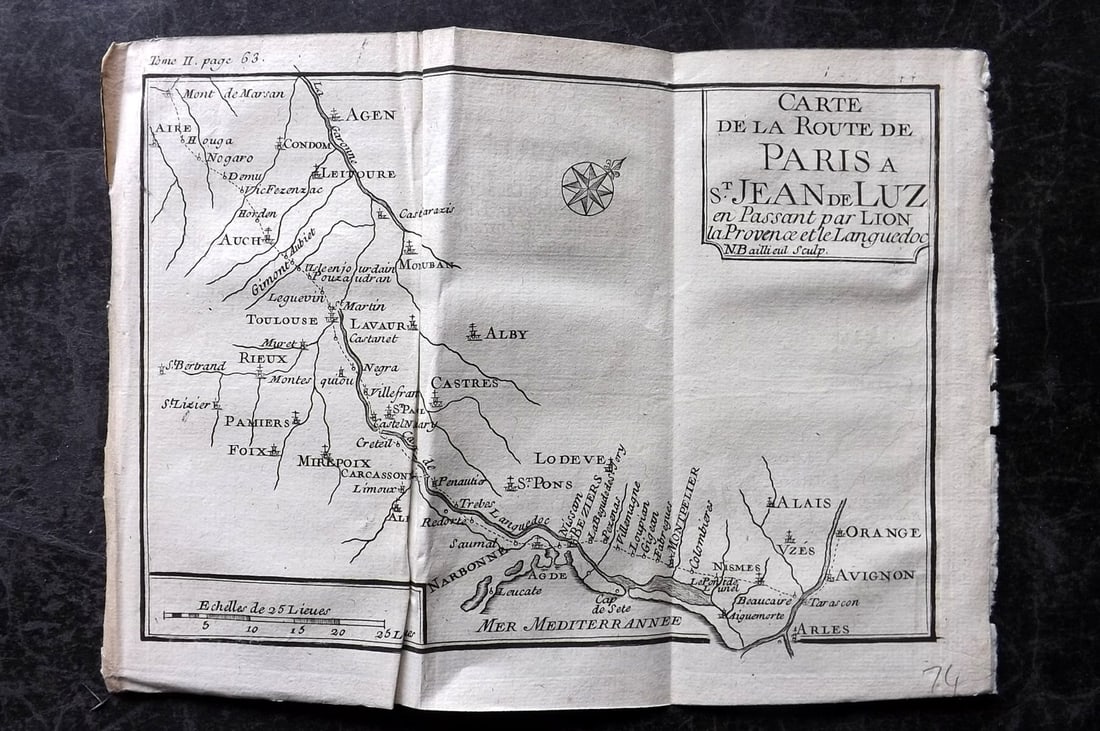 Tome II. page 63.
CARTE
DE LA ROUTE DE
PARIS A
S.T JEAN DE LUZ
en Passant par LION
la Provence et le Languedoc
N.Baillieul Sculp.
Mont de Marsan
AGEN
La Garonne
AIRE
Houga
CONDOM
Nogaro
Demu
LEITOURE
Vic Fezenzac
Horden
Castarazis
AUCH
Aubiet
Gimont
MOTUBAN
Leguevin
St Martin
TOULOUSE
LAVAUR
ALBY
Castanet
Muret
RIEUX
St. Bertrand
Montes quiou
Negra
Villefran
CASTRES
St. Lizier
ST PAUL
Castel Naary
PAMIERS
Creteil
FOIX
MIREPOIX
CARCASSON
LODEVE
Limoux
Penautier
ST PONS
ALAIS
Trebes
Redorte
Languedoc
Nissan
BEZIERS
La Begude de Jory
Pezenas
Villemagne
Loupian
Gigean
Fabregues
MONTPELIER
Colombieres
ORANGE
UZÉS
Saumal
NARBONNE
AGDE
NISMES
AVIGNON
Le Pon de Lunel
Leucate
Cap de Sete
Beaucaire
Tarascon
Aiguemorte
MER MEDITERRANNEE
ARLES
Echelles de 25 Lieues
5 10 15 20 25 L
74